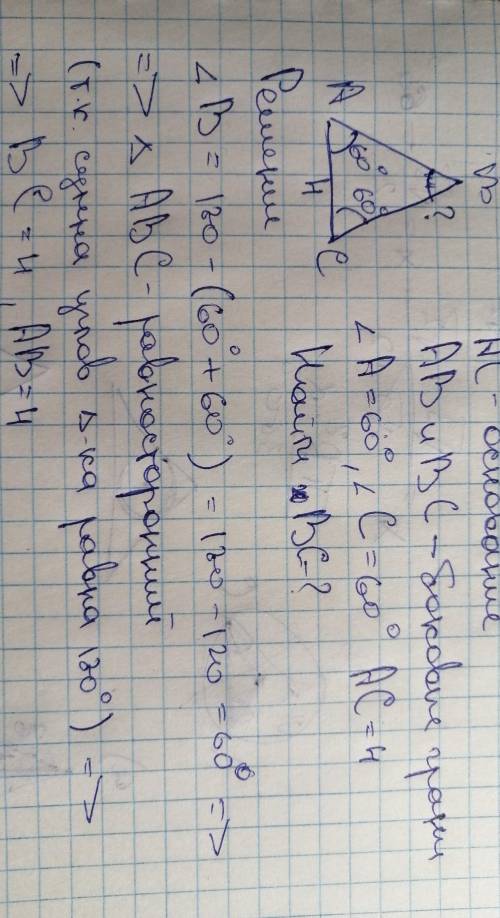 AC - основание
AB и BC - боковые грани
∠A = 60°, ∠C = 60° AC = 4
Найти BC - ?
B
?
A
60° 60°
4
C
Решение
∠B = 180 - (60° + 60°) = 180 - 120 = 60° =>
=> △ ABC - равносторонний
(т.к. сумма углов △-ка равна 180°) =>
=> BC = 4, AB = 4